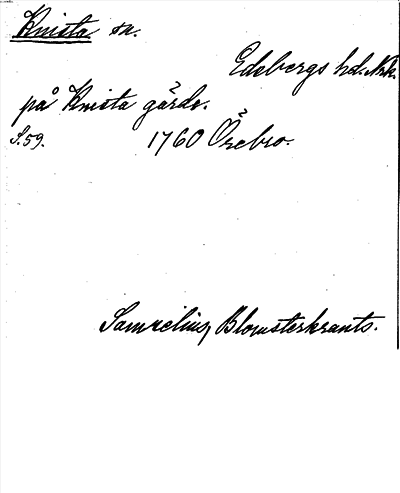 Knista sn.
Edsbergs hd. Nrk.
på Knista gärde.
S. 59. 1760 Örebro.
Samzelius, Blomsterkrants.